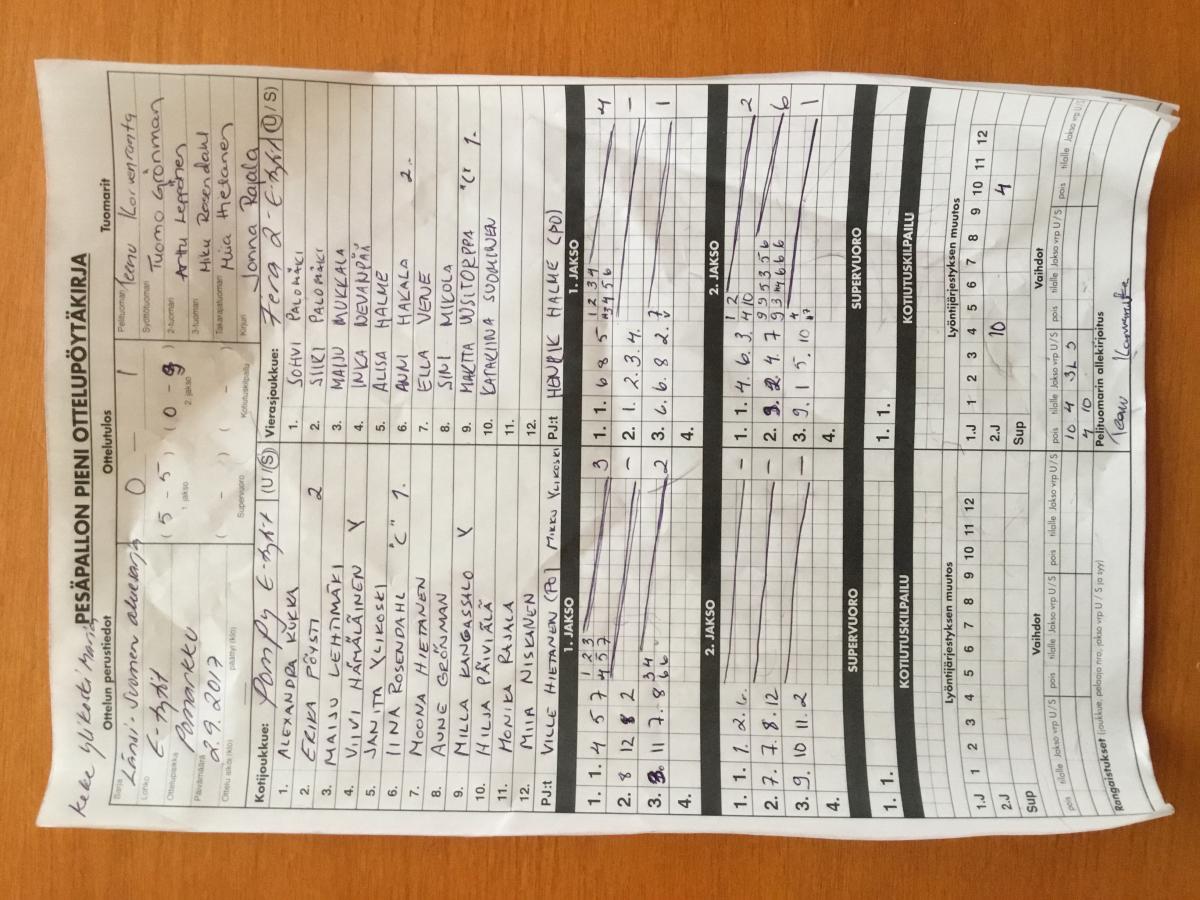 Keke Ylikoski
PESÄPALLON PIENI OTTELUPÖYTÄKIRJA
Ottelun perustiedot
Sarja
Länsi-Suomen
Lohko
E-tytöt
Ottelupaikka
Pomarkku
Päivämäärä
2.9.2017
Ottelu alkoi (klo) päättyi (klo)
Ottelutulos
0 – 1
( 5 - 5 ) ( 0 - 9
1. jakso 2. jakso
( - ) ( - )
Supervuoro Kotiutuskilpailu
Tuomarit
Pelituomari Teemu Korvenranta
Syöttötuomari Tuomo Grönman
2-tuomari Arttu Leppänen
3-tuomari Miku Rosendahl
Takarajatuomari Miia Hietanen
Kirjuri Jonna Rajala
Kotijoukkue: PomPy E-tytöt (U/S)
1. ALEXANDRA KUKKA
2. ERIKA PÖYSTI 2
3. MAIJU LEHTIMÄKI
4. VIIVI HÄMÄLÄINEN Y
5. JANITA YLIKOSKI
6. IINA ROSENDAHL "C" 1.
7. MOONA HIETANEN
8. AUNE GRÖNMAN
9. MILLA KANGASSALO Y
10. HILJA PÄIVIÄLÄ
11. MONIKA RAJALA
12. MIIA NISKANEN
PJ:t VILLE HIETANEN (PO) MIKKU YLIKOSKI
Vierasjoukkue: Fera 2 - E-tytöt (U/S)
1. SOHVI PALOMÄKI
2. SIIRI PALOMÄKI
3. MAIJU MUKKALA
4. INKA NEVANPÄÄ
5. ALISA HALME
6. ANNI HAKALA 2.
7. ELLA VENE
8. SINI MIKOLA
9. MARTTA UUSITORPPA "C" 1.
10. KATARIINA SUOMINEN
11.
12.
PJ:t HENRIK HALME (PO)
1. JAKSO
1. 1. 4 5 7 3
2. 8 12 8 2 –
3. 3. 11 7. 8 2
4.
1. JAKSO
1. 1. 6 8 5 4
2. 1. 2. 3. 4. –
3. 6. 6. 8 2. 7 1
4.
2. JAKSO
1. 1. 1. 2. –
2. 7. 7. 8. 12 –
3. 9. 10 11. 2 –
4.
2. JAKSO
1. 1. 4. 6. 3. 2
2. 9. 2. 4. 7 6
3. 9. 1 5. 10 1
4.
SUPERVUORO
1. 1.
KOTIUTUSKILPAILU
SUPERVUORO
1. 1.
KOTIUTUSKILPAILU
Lyöntijärjestyksen muutos
1 2 3 4 5 6 7 8 9 10 11 12
1.J
2.J
Sup
Lyöntijärjestyksen muutos
1 2 3 4 5 6 7 8 9 10 11 12
1.J
2.J 10 4
Sup
Vaihdot
pois tilalle Jakso vrp U/S pois tilalle Jakso vrp U/S pois tilalle Jakso vrp U/S
Vaihdot
pois tilalle Jakso vrp U/S pois tilalle Jakso vrp U/S pois tilalle Jakso vrp U/S
10 4
4 10
Rangaistukset (joukkue, pelaaja nro, jakso vrp U / S ja syy)
Pelituomarin allekirjoitus
Teemu Korvenranta